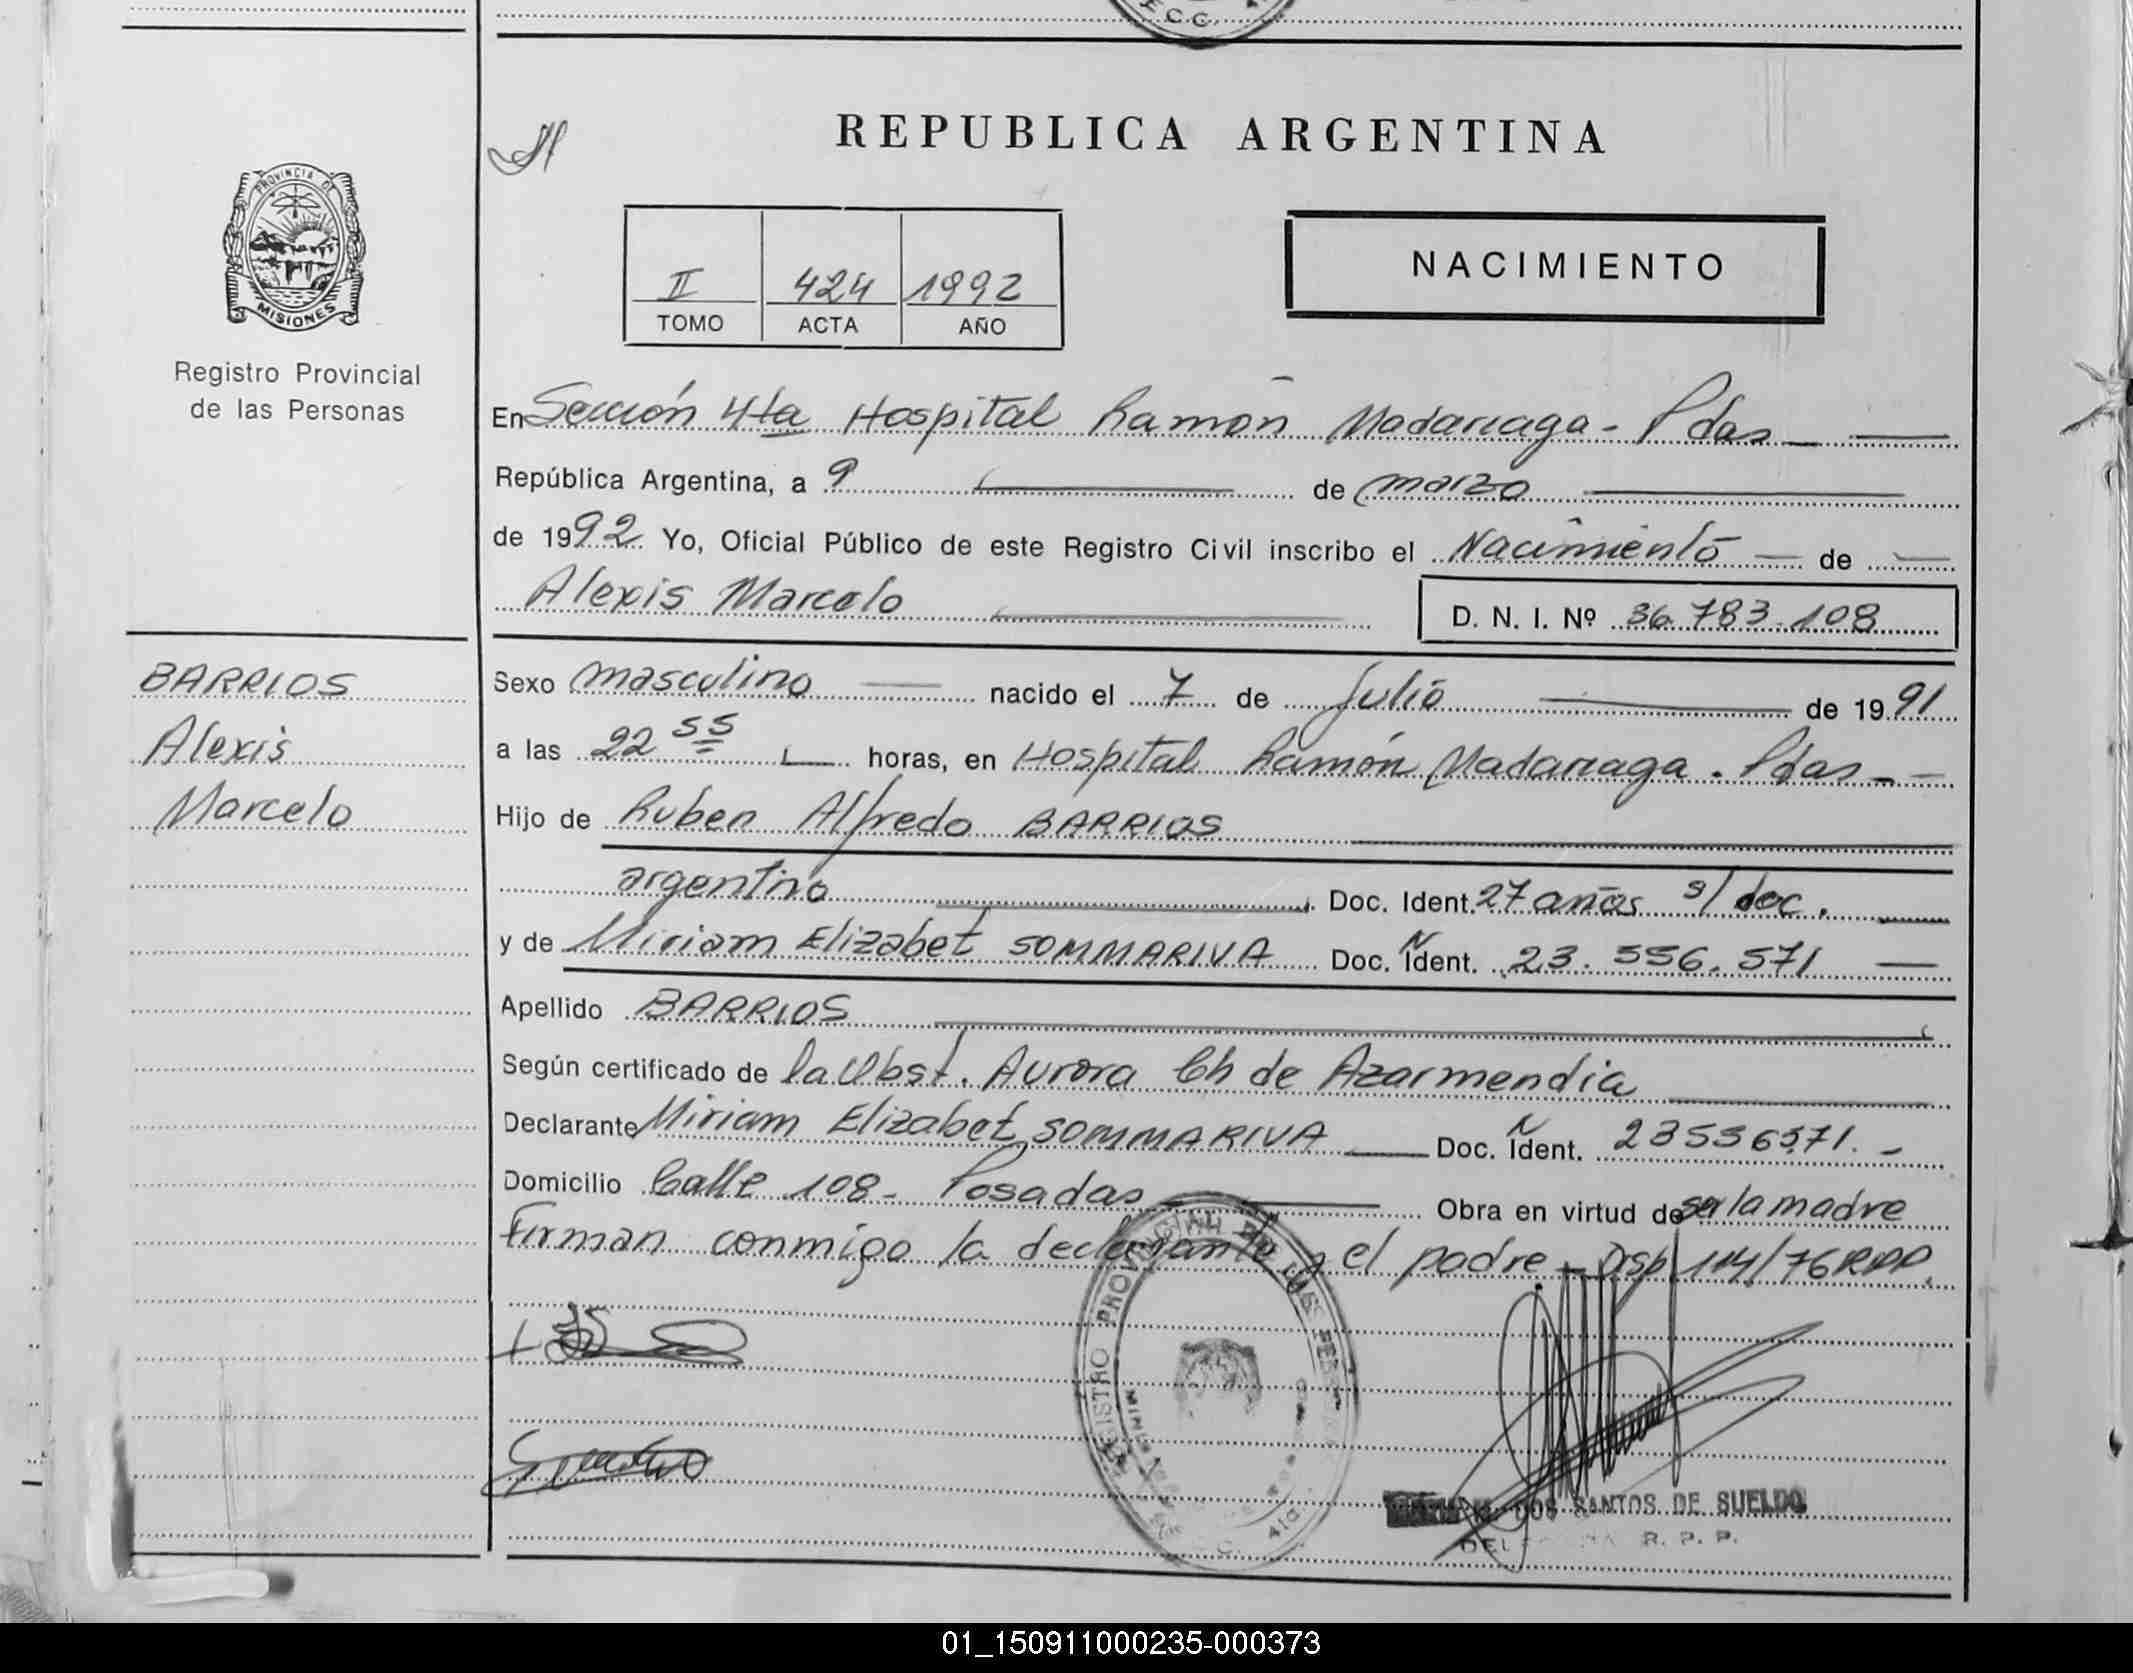 E.C.C.
REPUBLICA ARGENTINA
PROVINCIA DE
MISIONES
Registro Provincial
de las Personas
II 424 1992
TOMO ACTA AÑO
NACIMIENTO
En Sección 4ta Hospital Ramón Madariaga - Pdas
República Argentina, a 9 de marzo
de 1992 Yo, Oficial Público de este Registro Civil inscribo el Nacimiento de
Alexis Marcelo D. N. I. Nº 36.783.108
BARRIOS
Alexis
Marcelo
Sexo masculino nacido el 7 de Julio de 1991
a las 22 55 horas, en Hospital Ramón Madariaga . Pdas -
Hijo de Ruben Alfredo BARRIOS
argentino Doc. Ident. 27 años s/ doc.
y de Miriam Elizabet SOMMARIVA Doc. Ident. N 23. 536. 571
Apellido BARRIOS
Según certificado de la Obst. Aurora Ch de Azarmendia
Declarante Miriam Elizabet SOMMARIVA Doc. Ident. N 23536571. -
Domicilio Calle 108 - Posadas Obra en virtud de ser la madre
Firman conmigo la declarante y el padre - Disp 114/76 RPP.
REGISTRO PROVINCIAL DE LAS
DOS SANTOS DE SUELDO
R. P. P.
01_150911000235-000373